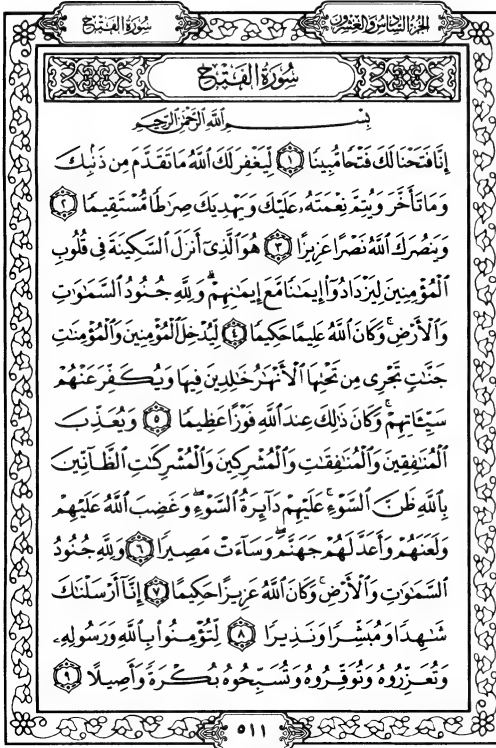 سُورَةُ الفَتْحِ
الجُزْءُ السَّادِسُ وَالعِشْرُونَ
سُورَةُ الْفَتْحِ
بِسْمِ ٱللَّهِ ٱلرَّحْمَٰنِ ٱلرَّحِيمِ
إِنَّا فَتَحْنَا لَكَ فَتْحًا مُّبِينًا ١ لِّيَغْفِرَ لَكَ ٱللَّهُ مَا تَقَدَّمَ مِن ذَنۢبِكَ
وَمَا تَأَخَّرَ وَيُتِمَّ نِعْمَتَهُۥ عَلَيْكَ وَيَهْدِيَكَ صِرَٰطًا مُّسْتَقِيمًا ٢
وَيَنصُرَكَ ٱللَّهُ نَصْرًا عَزِيزًا ٣ هُوَ ٱلَّذِىٓ أَنزَلَ ٱلسَّكِينَةَ فِى قُلُوبِ
ٱلْمُؤْمِنِينَ لِيَزْدَادُوٓا۟ إِيمَٰنًا مَّعَ إِيمَٰنِهِمْ ۗ وَلِلَّهِ جُنُودُ ٱلسَّمَٰوَٰتِ
وَٱلْأَرْضِ ۚ وَكَانَ ٱللَّهُ عَلِيمًا حَكِيمًا ٤ لِّيُدْخِلَ ٱلْمُؤْمِنِينَ وَٱلْمُؤْمِنَٰتِ
جَنَّٰتٍ تَجْرِى مِن تَحْتِهَا ٱلْأَنْهَٰرُ خَٰلِدِينَ فِيهَا وَيُكَفِّرَ عَنْهُمْ
سَيِّـَٔاتِهِمْ ۚ وَكَانَ ذَٰلِكَ عِندَ ٱللَّهِ فَوْزًا عَظِيمًا ٥ وَيُعَذِّبَ
ٱلْمُنَٰفِقِينَ وَٱلْمُنَٰفِقَٰتِ وَٱلْمُشْرِكِينَ وَٱلْمُشْرِكَٰتِ ٱلظَّآنِّينَ
بِٱللَّهِ ظَنَّ ٱلسَّوْءِ ۚ عَلَيْهِمْ دَآئِرَةُ ٱلسَّوْءِ ۖ وَغَضِبَ ٱللَّهُ عَلَيْهِمْ
وَلَعَنَهُمْ وَأَعَدَّ لَهُمْ جَهَنَّمَ ۖ وَسَآءَتْ مَصِيرًا ٦ وَلِلَّهِ جُنُودُ
ٱلسَّمَٰوَٰتِ وَٱلْأَرْضِ ۚ وَكَانَ ٱللَّهُ عَزِيزًا حَكِيمًا ٧ إِنَّآ أَرْسَلْنَٰكَ
شَٰهِدًا وَمُبَشِّرًا وَنَذِيرًا ٨ لِّتُؤْمِنُوا۟ بِٱللَّهِ وَرَسُولِهِۦ
وَتُعَزِّرُوهُ وَتُوَقِّرُوهُ وَتُسَبِّحُوهُ بُكْرَةً وَأَصِيلًا ٩
٥١١